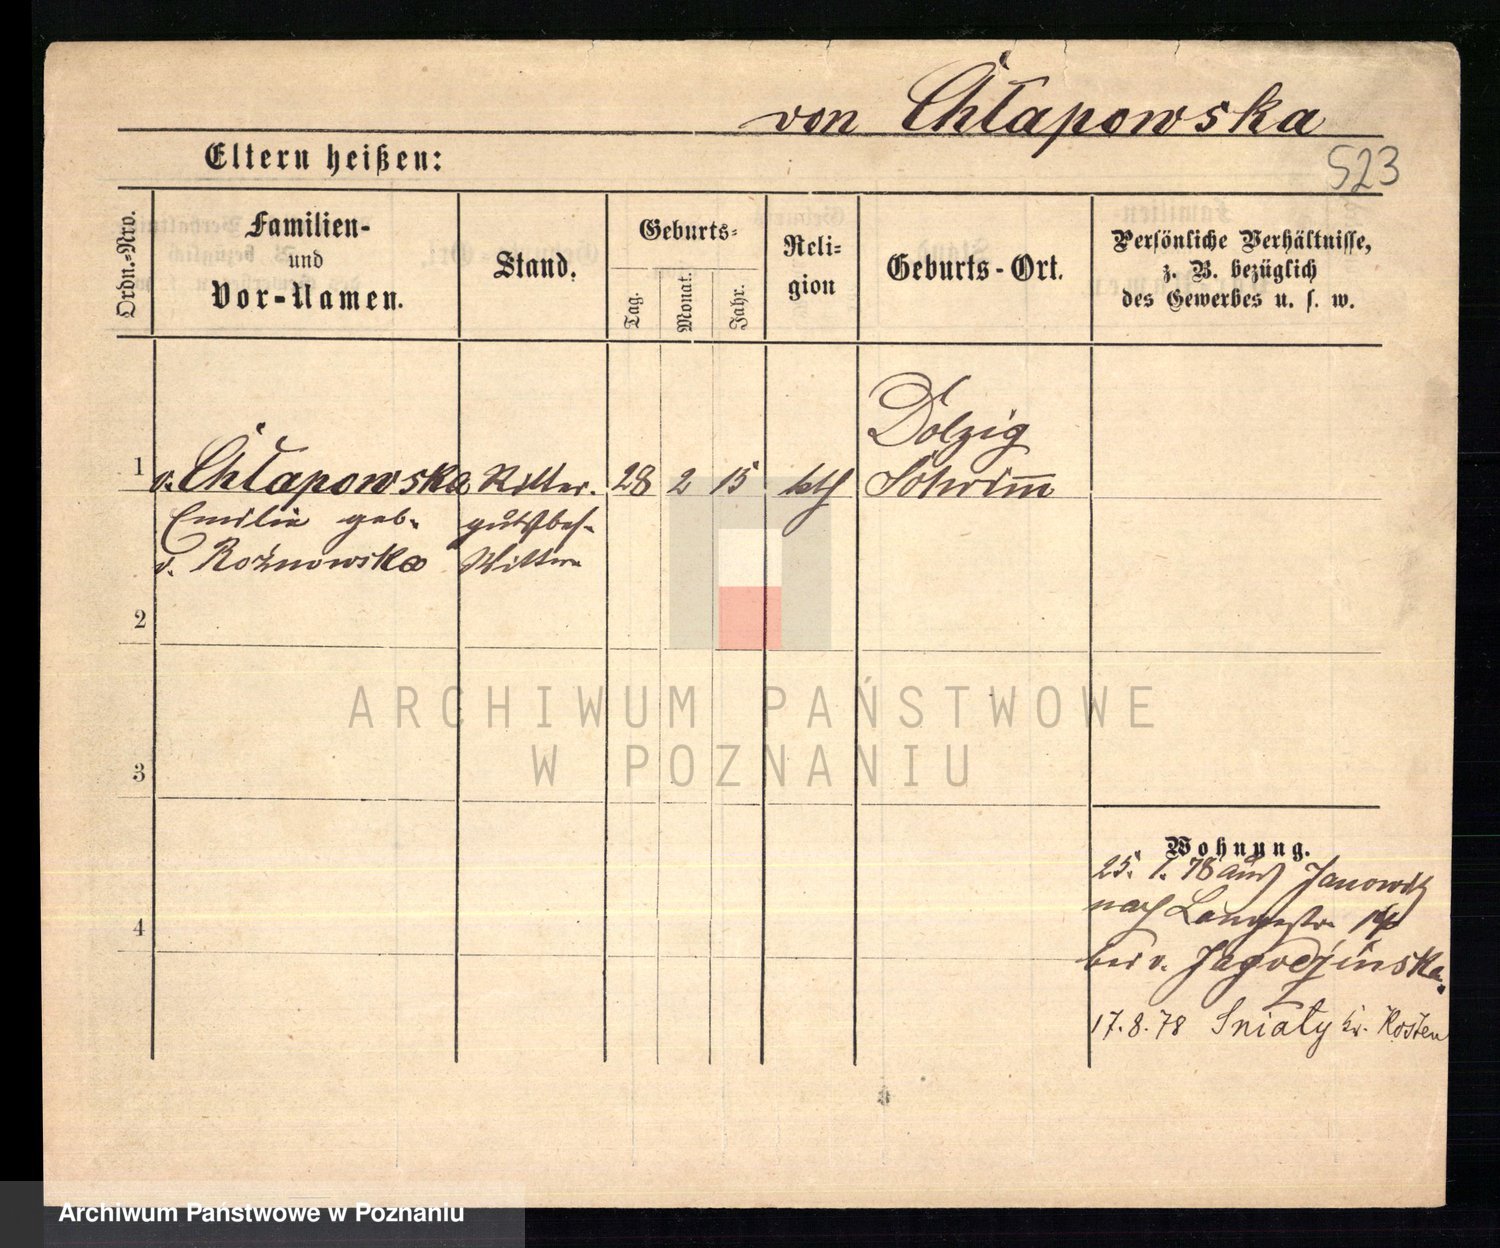 von Chłapowska
523
Eltern heißen:
Ordn.-Nro.
Familien-
und
Vor-Namen.
Stand.
Geburts-
Tag.
Monat.
Jahr.
Reli-
gion
Geburts-Ort.
Persönliche Verhältnisse,
z. B. bezüglich
des Gewerbes u. s. w.
1
v. Chłapowska
Emilie geb.
v. Rożnowska
Ritter-
gutsbes.
Wittwe
28 2 15 kth
Dolzig
Schrimm
2
3
4
Wohnung.
25. 1. 78 aus Janowitz
nach Langestr. 14
bei v.
17. 8. 78 Sniaty Kr. Kosten
ARCHIWUM PAŃSTWOWE
W POZNANIU
Archiwum Państwowe w Poznaniu